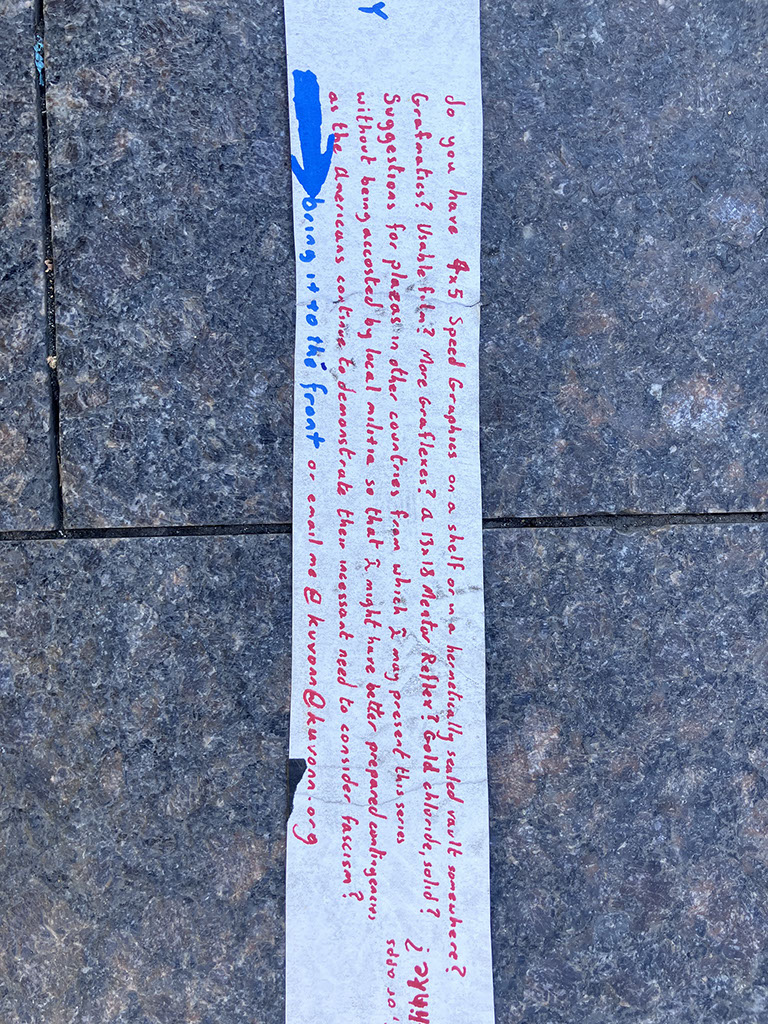 Y
do you have 4x5 Speed Graphics on a shelf or in a hermetically sealed vault somewhere?
Grafmatics? Usable film? More Graflexes? A 13x18 Mentor Reflex? Gold chloride, solid?
Suggestions for plazas in other countries from which I may present this series
without being accosted by local militia so that I might have better prepared contingencies,
as the Americans continue to demonstrate their incessant need to consider fascism?
bring it to the front or email me @ kuvonn@kuvonn.org
, or apps